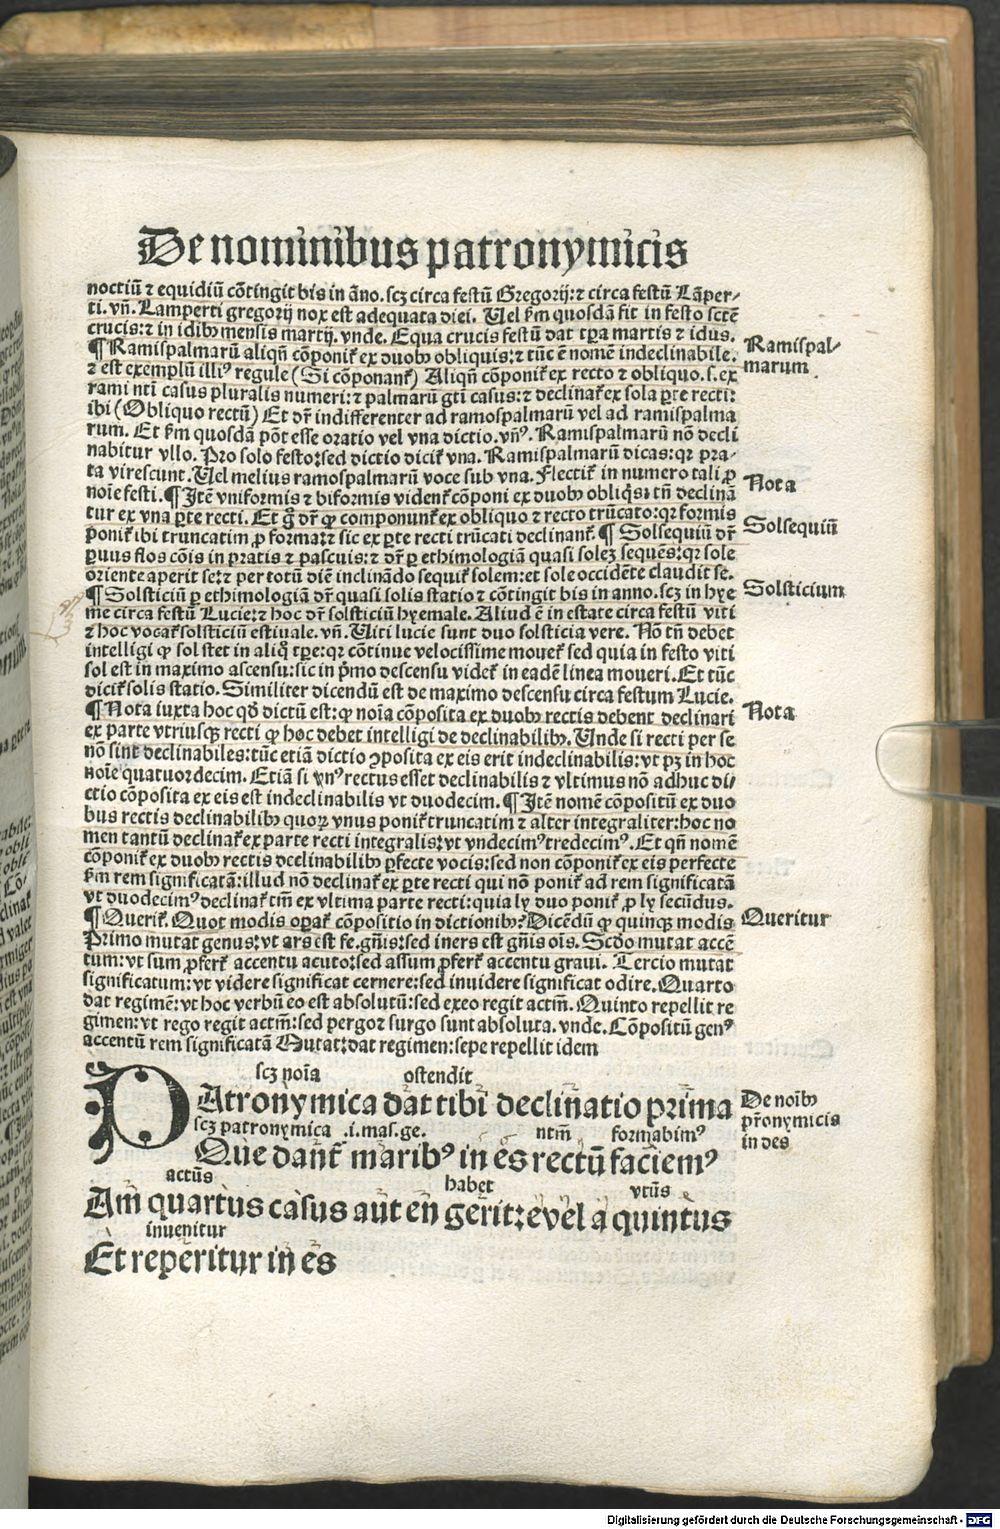 De nominibus patronymicis
noctiū ⁊ equidiū cōtingit bis in āno. scꝫ circa festū Gregorij: ⁊ circa festū Lāper-
ti. vñ. Lamperti gregorij nox est adequata diei. Uel ẜm quosdā fit in festo sctē
crucis: ⁊ in idibꝫ mensis martij. vnde. Equa crucis festū dat tꝑa martis ⁊ idus.
¶ Ramispalmarū aliqñ cōponit᷑ ex duobꝫ obliquis: ⁊ tūc ē nomē indeclinabile.
⁊ est exemplū illiꝰ regule (Si cōponant᷑) Aliqñ cōponit᷑ ex recto ⁊ obliquo. s. ex
rami nti casus pluralis numeri: ⁊ palmarū gti casus: ⁊ declinat᷑ ex sola ꝑte recti:
ibi (Obliquo rectū) Et dr̄ indifferenter ad ramospalmarū vel ad ramispalma
rum. Et ẜm quosdā pōt esse oratio vel vna dictio. vñꝰ. Ramispalmarū nō decli
nabitur vllo. Pro solo festo: sed dictio dicit᷑ vna. Ramispalmarū dicas: qꝛ pra-
ta virescunt. Uel melius ramospalmarū voce sub vna. Flectit᷑ in numero tali ꝓ
noīe festi. ¶ Itē vniformis ⁊ biformis vident᷑ cōponi ex duobꝫ obliqͥs: tñ declinā
tur ex vna ꝑte recti. Et ḡͦ dr̄ ꝙ componunt᷑ ex obliquo ⁊ recto trūcato: qꝛ formis
ponit᷑ ibi truncatim ꝓ forma: ⁊ sic ex ꝑte recti trūcati declinant᷑. ¶ Solsequiū dr̄
ꝑuus flos cōis in pratis ⁊ pascuis: ⁊ dr̄ ꝑ ethimologiā quasi soleꝫ sequēs: qꝛ sole
oriente aperit se: ⁊ per totū diē inclinādo sequit᷑ solem: et sole occidēte claudit se.
¶ Solsticiū ꝑ ethimologiā dr̄ quasi solis statio ⁊ cōtingit bis in anno. scꝫ in hye
me circa festū Lucie: ⁊ hoc dr̄ solsticiū hyemale. Aliud ē in estate circa festū viti
⁊ hoc vocat᷑ solsticiū estiuale. vñ. Uiti lucie sunt duo solsticia vere. Nō tñ debet
intelligi ꝙ sol stet in aliqͦ tꝑe: qꝛ cōtinue velocissime mouet᷑ sed quia in festo viti
sol est in maximo ascensu: sic in pͥmo descensu videt᷑ in eadē linea moueri. Et tūc
dicit᷑ solis statio. Similiter dicendū est de maximo descensu circa festum Lucie.
¶ Nota iuxta hoc qđ dictū est: ꝙ noīa cōposita ex duobꝫ rectis debent declinari
ex parte vtriusqꝫ recti ꝙ hoc debet intelligi de declinabilibꝫ. Unde si recti per se
nō sint declinabiles: tūc etiā dictio ꝯposita ex eis erit indeclinabilis: vt pꝫ in hoc
noīe quatuordecim. Etiā si vnꝰ rectus esset declinabilis ⁊ vltimus nō adhuc di/
ctio cōposita ex eis est indeclinabilis vt duodecim. ¶ Itē nomē cōpositū ex duo
bus rectis declinabilibꝫ quoꝝ vnus ponit᷑ truncatim ⁊ alter integraliter: hoc no
men tantū declinat᷑ ex parte recti integralis: vt vndecimꝰ tredecimꝰ. Et qñ nomē
cōponit᷑ ex duobꝫ rectis declinabilibꝫ ꝑfecte vocis: sed non cōponit᷑ ex eis perfecte
ẜm rem significatā: illud nō declinat᷑ ex ꝑte recti qui non ponit᷑ ad rem significatā
vt duodecimꝰ declinat᷑ tm̄ ex vltima parte recti: quia ly duo ponit᷑ ꝓ ly secūdus.
¶ Querit᷑. Quot modis oꝑat᷑ cōpositio in dictionibꝫ? Dicēdū ꝙ quinqꝫ modis
Primo mutat genus: vt ars est fe. gñis: sed iners est gñis ois. Scđo mutat accē
tum: vt sum ꝓfert᷑ accentu acuto: sed assum ꝓfert᷑ accentu graui. Tercio mutat
significatum: vt videre significat cernere: sed inuidere significat odire. Quarto
dat regimē: vt hoc verbū eo est absolutū: sed exeo regit actm̄. Quinto repellit re
gimen: vt rego regit actm̄: sed pergo ⁊ surgo sunt absoluta. vnde. Cōpositū genꝰ
accentū rem significatā Mutat: dat regimen: sepe repellit idem
scꝫ noīa ostendit
PAtronymica dat tibi declinatio prima
scꝫ patronymica .i. mas. ge. ntm̄ formabimꝰ
Que dant᷑ maribꝰ in es rectū faciemꝰ
actūs habet vtūs
Am̄ quartus casus aut en gerit: e vel a quintus
inuenitur
Et reperitur in es
Ramispal-
marum
Nota
Solsequiū
Solsticium
Nota
Queritur
De noībꝫ
pr̄onymicis
in des
Digitalisierung gefördert durch die Deutsche Forschungsgemeinschaft - DFG